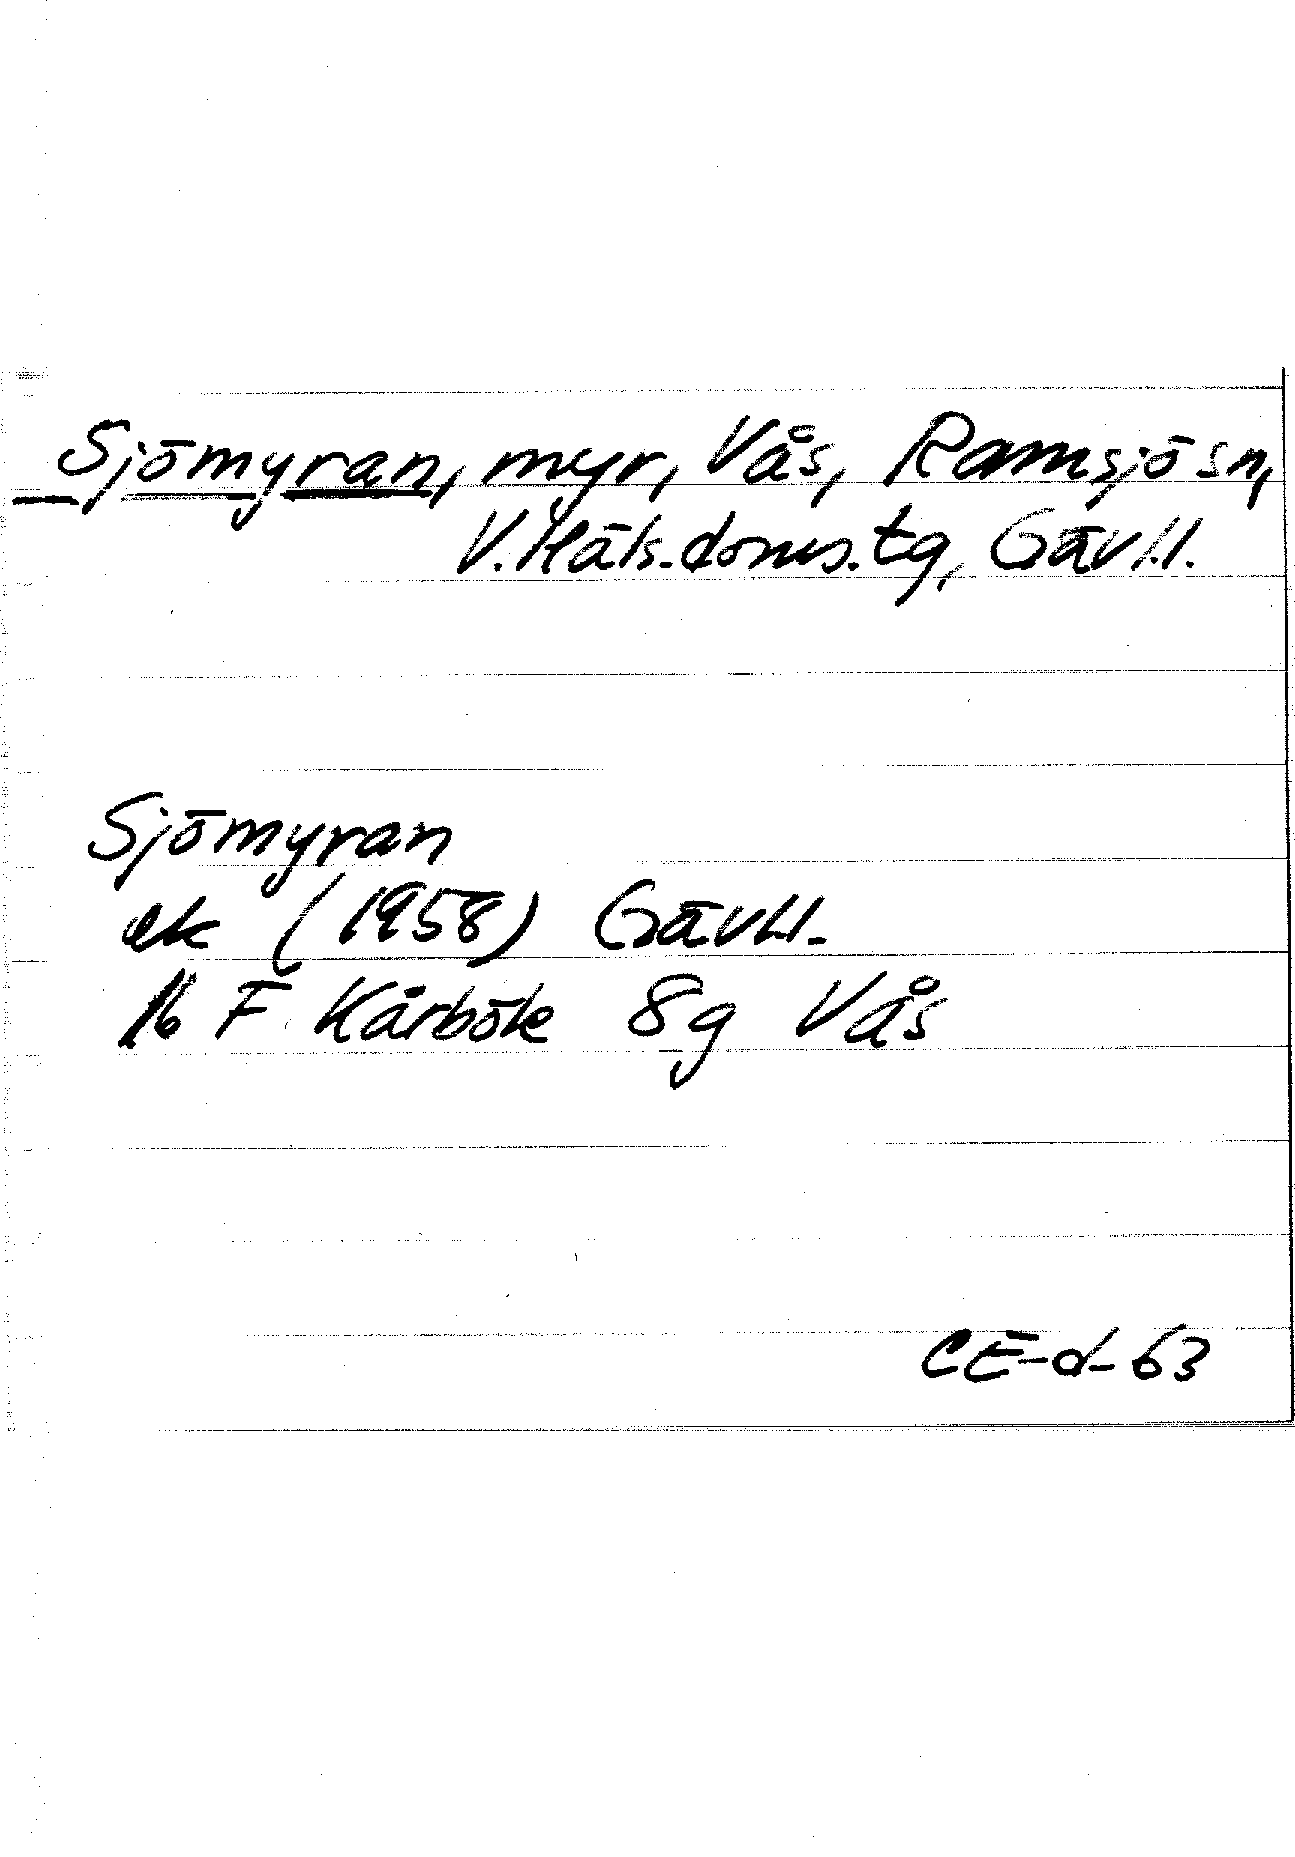 Sjömyran, myr, Vås, Ramsjö sn,
V. Häls. doms. tg, Gävl.l.
Sjömyran
ek (1958) Gävl.l.
16 F Kårböle 8g Vås
CE-d-63